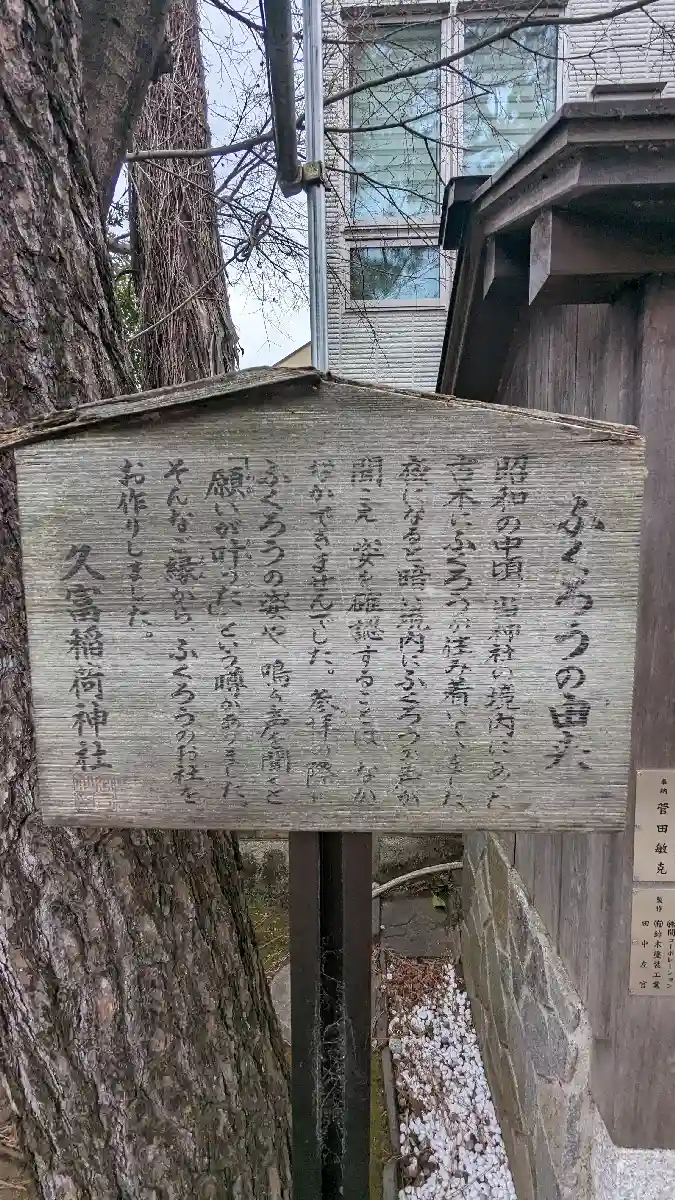 ふくろうの由来
昭和の中頃、当神社の境内にあった
古木にふくろうが住み着いていました
夜になると、暗い境内にふくろうの声が
聞こえ 姿を確認することは なか
なかできませんでした。参拝の際に
ふくろうの姿や 鳴き声を聞くと
「願いが叶った」という噂がありました、
そんなご縁から、ふくろうのお社を
お作りしました。
久富稲荷神社
奉納
菅田敏克
製作
㈲鈴木建装工業
田中左官